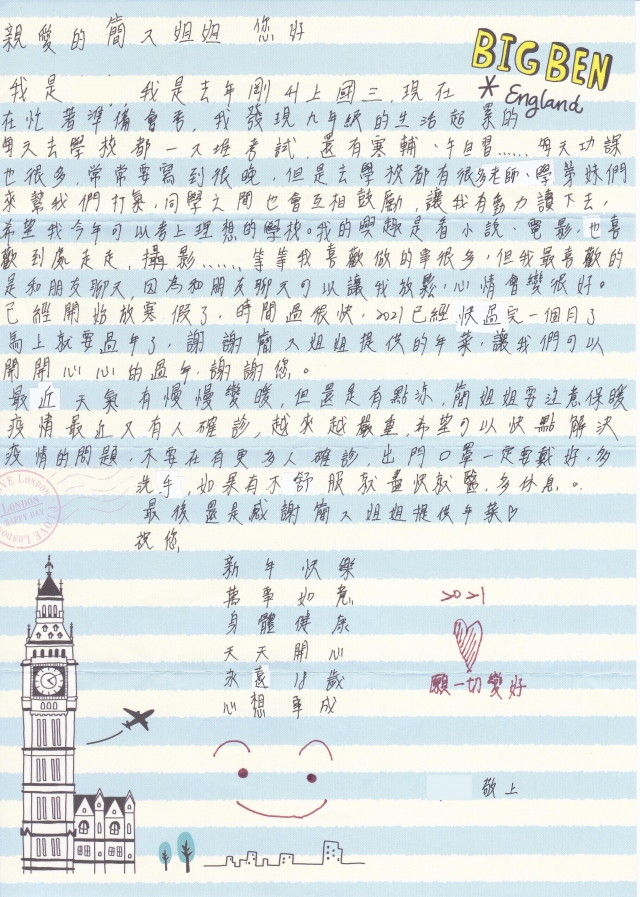 親愛的簡又姐姐 您好
BIG BEN
England
我是 我是去年剛升上國三,現在
在忙著準備會考,我發現九年級的生活超累的
每天去學校都一大堆考試,還有寒輔、午自習......每天功課
也很多,常常要寫到很晚,但是去學校都有很多老師、學弟妹們
來幫我們打氣,同學之間也會互相鼓勵,讓我有動力讀下去,
希望我今年可以考上理想的學校。我的興趣是看小說、電影,也喜
歡到處走走,攝影......等等我喜歡做的事很多,但我最喜歡的
是和朋友聊天,因為和朋友聊天可以讓我放鬆,心情會變很好。
已經開始放寒假了,時間過很快,2021已經快過完一個月了
馬上就要過年了,謝謝簡又姐姐提供的年菜,讓我們可以
開開心心的過年,謝謝您。
最近天氣有慢慢變暖,但還是有點涼,簡姐姐要注意保暖
疫情最近又有人確診,越來越嚴重,希望可以快點解決
疫情的問題,不要在有更多人確診,出門口罩一定要戴好,多
洗手,如果有不舒服就盡快就醫,多休息。
最後還是感謝簡又姐姐提供年菜♡
祝您
新年快樂
萬事如意
身體健康
天天開心
永遠18歲
心想事成
2021
願一切變好
敬上
I LOVE London
LONDON
HAPPY DAY